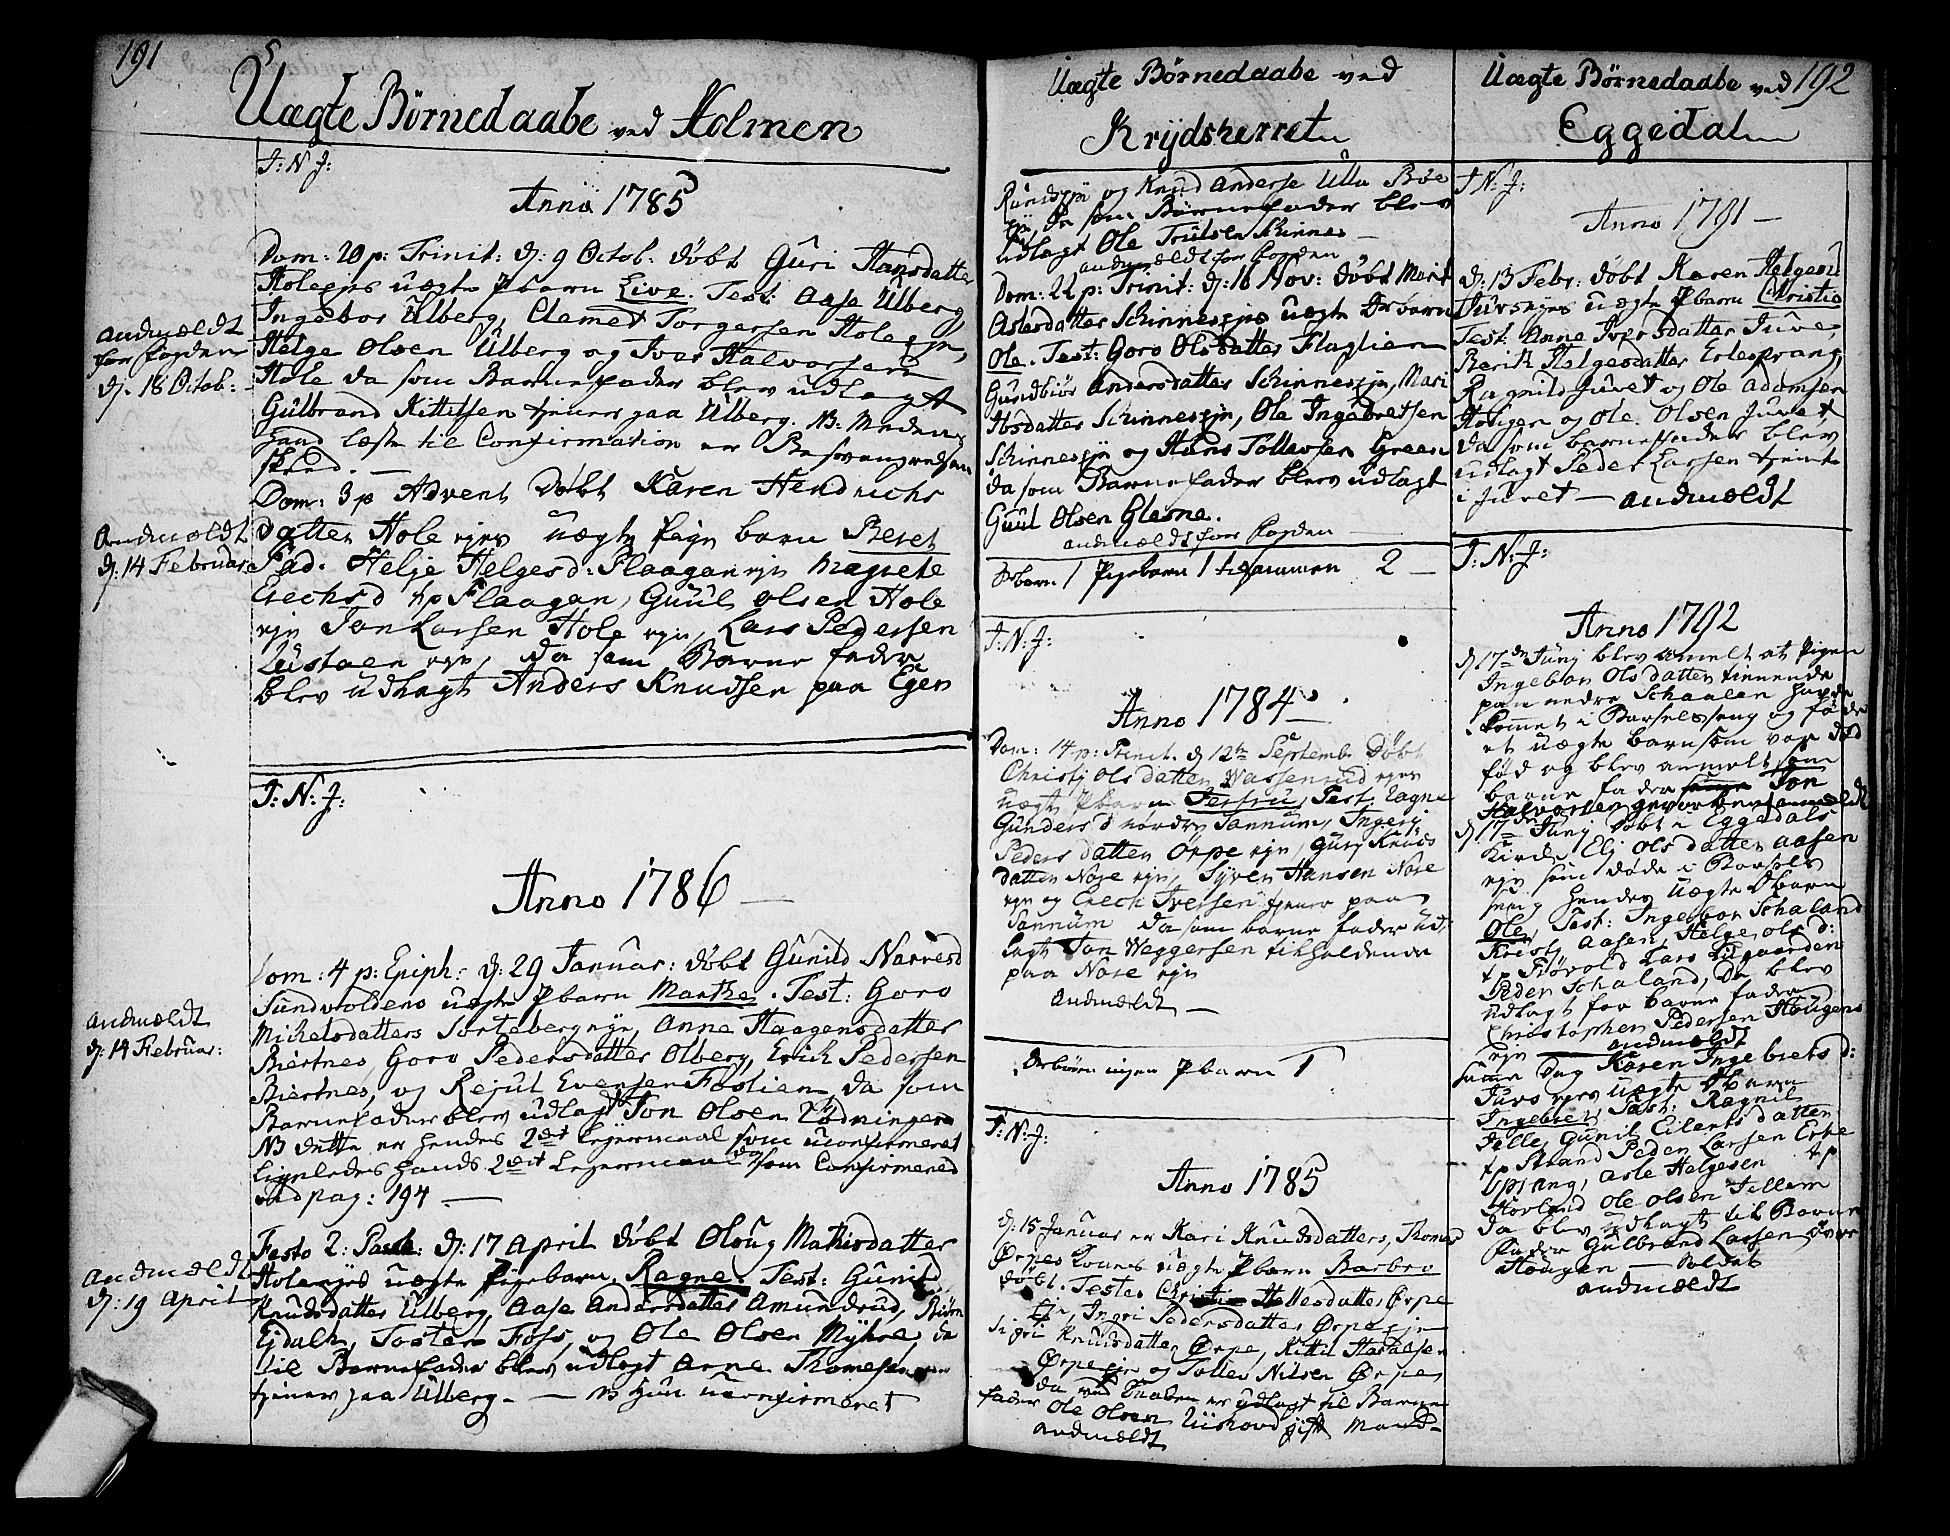 191
Uægte Børnedaabe ved Holmen
J: N: J:
Anno 1785
Dom: 20 p: Trinit: d: 9 Octob: døbt Guri Hansdatter
Holeejes uægte Pbarn Live. Test: Aase Ulberg,
Ingebor Ulberg, Clemet Torgersen Holeeje,
Helge Olsen Ulberg og Iver Halvorsen
Hole da som Barnefader blev udlagt
Gulbrand Kittilsen tjener paa Ulberg. NB: Meden
hand læste til Confirmation er Besvangredsen
skeed. —
andmældt
for fogden
d: 18 Octob:
Dom: 3 p Advent døbt Karen Hendrichs
datter Hole ejes uægte pige barn Beret
Fad. Helje Helgesd: Flaagan eje Magrete
Erechsd tp Flaagan, Guul Olsen Hole
eje Jon Larsen Hole eje, Lars Pedersen
eje, da som Barne fader
blev udlagt Anders Knudsen paa Egen
Andmældt
d: 14 Februar
J: N: J:
Anno 1786 —
Dom: 4 p: Epiph: d: 29 Januar: døbt Gunild Narvesd
Sundvoldens uægte Pbarn Marthe. Test: Goro
Michelsdatter Sorteberg eje, Anne Haagensdatter
Biertnes, Goro Pedersdatter Olberg, Erich Pedersen
Biertnes, og Rejul Evensen Foslien da som
Barnefader blev udlagt Jon Olsen
NB dette er hendes 2det Lejermaal som uconfirmeret
Ligeledes hands 2det Lejermaal som Confirmered
vid pag: 194 —
andmældt
d: 14 Februar:
Festo 2: Pasch: d: 17 April døbt Oloug Mathisdatter
Holeejes uægte pigebarn Ragne. Test: Gunild
Knudsdatter Ulberg, Aase Andersdatter Amundrud, Biørn
Ejdalh, Tosten Foss, og Ole Olsen Myhre, da
til Barnefader blev udlagt Arne Thomesen
tjener paa Ulberg. — NB Hun uconfirmeret
andmældt
d: 19 April
Uægte Børnedaabe ved
Krydsherret
og Knud Anderse Ulla Bøe
eje, da som Børnefader blev
udlagt Ole Trulsen Skinnes —
andmældt for fogden
Dom: 22 p: Trinit: d: 16 Nov: døbt Marit
Aslesdatter Skinnesejes uægte Drbarn
Ole. Test: Goro Olsdatter Flaglien
Gundbiør Andersdatter Skinneseje, Mari
Ibsdatter Skinneseje, Ole Ingebretsen
Skinneseje og Hans Tollevsen Green
da som Barnefader blev udlagt
Guul Olsen Glesne.
andmældt for fogden —
Drbarn 1 Pigebarn 1 tilsammen 2 —
J: N: J:
Anno 1784 —
Dom: 14 p: Trinit. d 12te Septembr Døbt
Christj Olsdatter Vassenrud ejes
uægt Pbarn Test: Ragne
Gundersd nordre Sannum, Ingerj
Pedersdatter Ørpe eje, Gurj Knuds
datter Nøse eje, Syver Hansen Nøse
eje og Erech Iversen tjener paa
Sannum da som barne fader ud,
lagt Jon Weggersen tilholdende
paa Nøse eje
andmældt —
Drbørn ingen Pbarn 1
J: N: J:
Anno 1785
d: 15 Januar er Kari Knudsdatters, Thomas
Ørpes Kones uægte Pbarn Barbro
døbt. Testes Christie Hellesdatter Ørpe
eje, Ingri Pedersdatter Ørpeeje
Sigri Knudsdatter Ørpe, Kittil Haraldsen
Ørpeeje og Tolles Nilsen Ørpe,
da ved Daaben er udlagt til Barne
fader Ole Olsen gift Mand —
andmældt
Uægte Børnedaabe ved 192
Eggedal
J: N: J:
Anno 1791 —
d: 13 Febr: døbt Karen Helgesd
Juvsejes uægte Pbarn Christie
Test: Anne Iversdatter Juve,
Berit Helgesdatter Erlesprang,
Ragnild Juvet og Ole Adamsen
Hougen og Ole Olsen Juvet
da som barnefader blev
udlagt Peder Larsen tjente
i Juvet — andmældt
J: N: J:
Anno 1792
d 17de Junj blev anmelt at Pigen
Ingebor Olsdatter tienende
paa nedre Schaalen havde
kommet i Barselsseng og fødde
et uægte barn som var død
fød og blev anmelt som
barne fader Jon
Halvorsen andmældt
d 17de Junj døbt i Eggedals
Kirche Elj Olsdatter Aasen
eje som døde i Barsels
seng hendes uægte Dbarn
Ole, Test: Ingebor Schaland
Kristj Aasen, Helge Ols d:
tp Frøvold Lars Ligaarden
Peder Schaland, Da blev
udlagt for barne fader
Christopher Pedersen Hougens
eje — andmældt
samme Dag Karen Ingebrets d:
Juvs ejes uægte Dbarn
Ingebret, Test: Ragnil
Dølle, Gunil Eilertsdatter
tp Strand Peder Larsen Erte
sprang, Asle Helgesen tp
Hørland Ole Olsen Tellem
da blev udlagt til Barne
fader Gulbrand Larsen øvre
Hougen — Soldat
andmældt